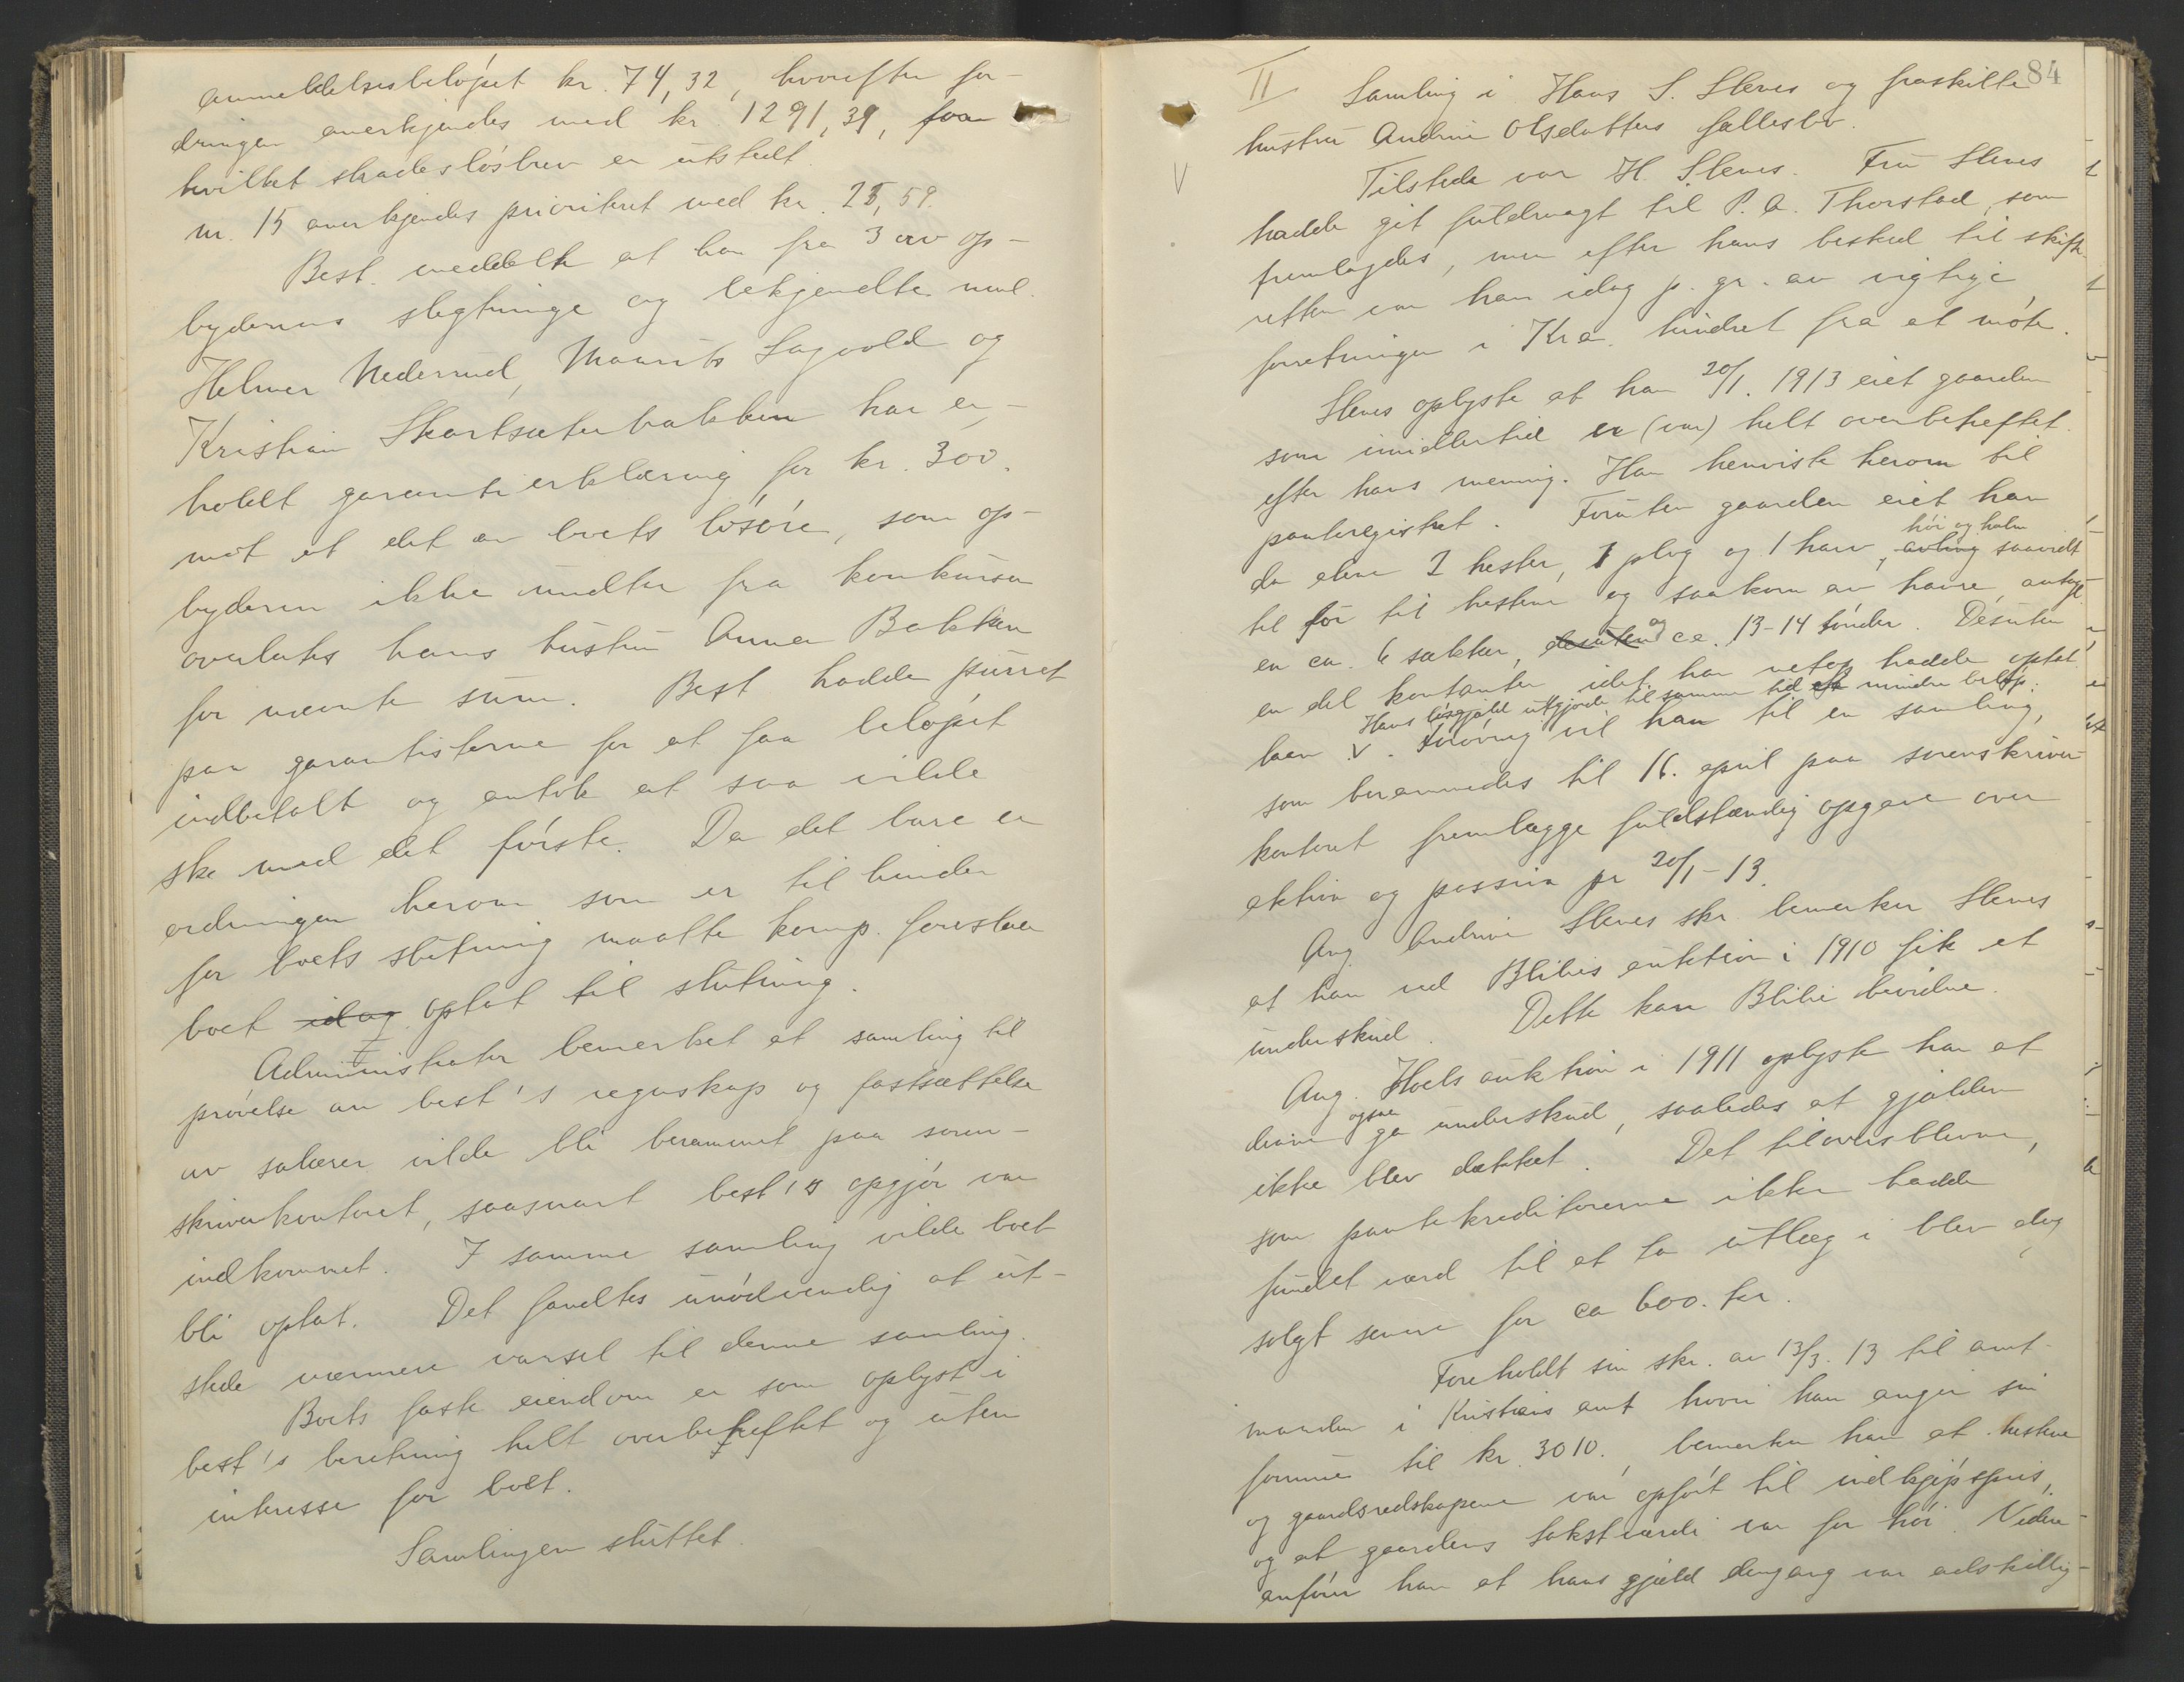 anmeldelsesbeløpet kr. 74,32, hvorefter for-
dringen anerkjendes med kr. 1291,39, for
hvilket skadesløsbrev er utstedt.
nr. 15 anerkjendes prioritert med kr. 25,59.
Best. meddelte at han fra 3 av op-
byderens slegtninge og bekjendte nml.
Helmer Nederrud, Maurits Sagvold og
Kristian Skartsæterbakken har er-
holdt garantierklæring for kr. 300.
mot at det av boets løsøre, som op-
byderen ikke undtar fra konkursen
overlates hans hustru Anna Bakken
for nævnte sum. Best. hadde purret
paa garantisterne for at faa beløpet
indbetalt og antok at saa vilde
ske med det første. Da det bare er
ordningen herom som er til hinder
for boets slutning maatte komp. foreslaa
boet idag optat til slutning.
Administrator bemerket at samling til
prøvelse av best's regnskap og fastsættelse
av salærer vilde bli berammet paa soren-
skriverkontoret, saasnart best's opgjør var
indkommet. I samme samling vilde boet
bli optat. Det fandtes unødvendig at ut-
stede nærmere varsel til denne samling.
Boets faste eiendom er som oplyst i
best's beretning helt overbeheftet og uten
interesse for boet.
Samlingen sluttet.
84
II Samling i Hans S. Slevès og fraskilte
hustru Andrine Olsdatters fællesbo.
Tilstede var H. Sleves. Fru Sleves
hadde git fuldmagt til P. A. Thorstad, som
fremlagdes, men efter hans beskud til skifte-
retten var han idag p. gr. av vigtige
forretninger i Kr.a. hindret fra at møte.
Sleves oplyste at han 20/1. 1913 eiet gaarden
som imidlertid er (var) helt overbeheftet
efter hans mening. Han henviste herom til
panteregistret. Foruten gaarden eiet han
høi og halm
da alene 2 hester, 1 plog og 1 harv, avling saavidt
til for til hestene og saakorn av havre, antagl.
en ca. 6 sækker, desuten og ca. 13-14 tønder. Desuten
en del kontanter idet han netop hadde optat
Hans løsgjæld utgjorde til samme tid et mindre beløp.
laan V. Forøvrig vil han til en samling,
som berammedes til 16. april paa sorenskriver-
kontoret fremlægge fuldstændig opgave over
aktiva og passiva pr 20/1-13.
Ang. Andrine Sleves skr. bemerker Sleves
at han ved Blilies auktion i 1910 fik et
underskud. Dette kan Blilie bevidne.
Ang. Hoels auktion i 1911 oplyste han at
ogsaa
denne ga underskud, saaledes at gjælden
ikke blev dækket. Det tiloversblevne,
som pantekreditorerne ikke hadde
fundet værd til at ta utlæg i blev dog
solgt senere for ca 600. kr.
Foreholdt sin skr. av 13/3. 13 til amt-
manden i Kristians amt hvori han angir sin
formue til kr. 3010., bemerker han at hestene
og gaardsredskapene var opført til indkjøpspris,
og at gaardens takstværdi var for høi. Videre
anfører han at hans gjæld dengang var adskillig